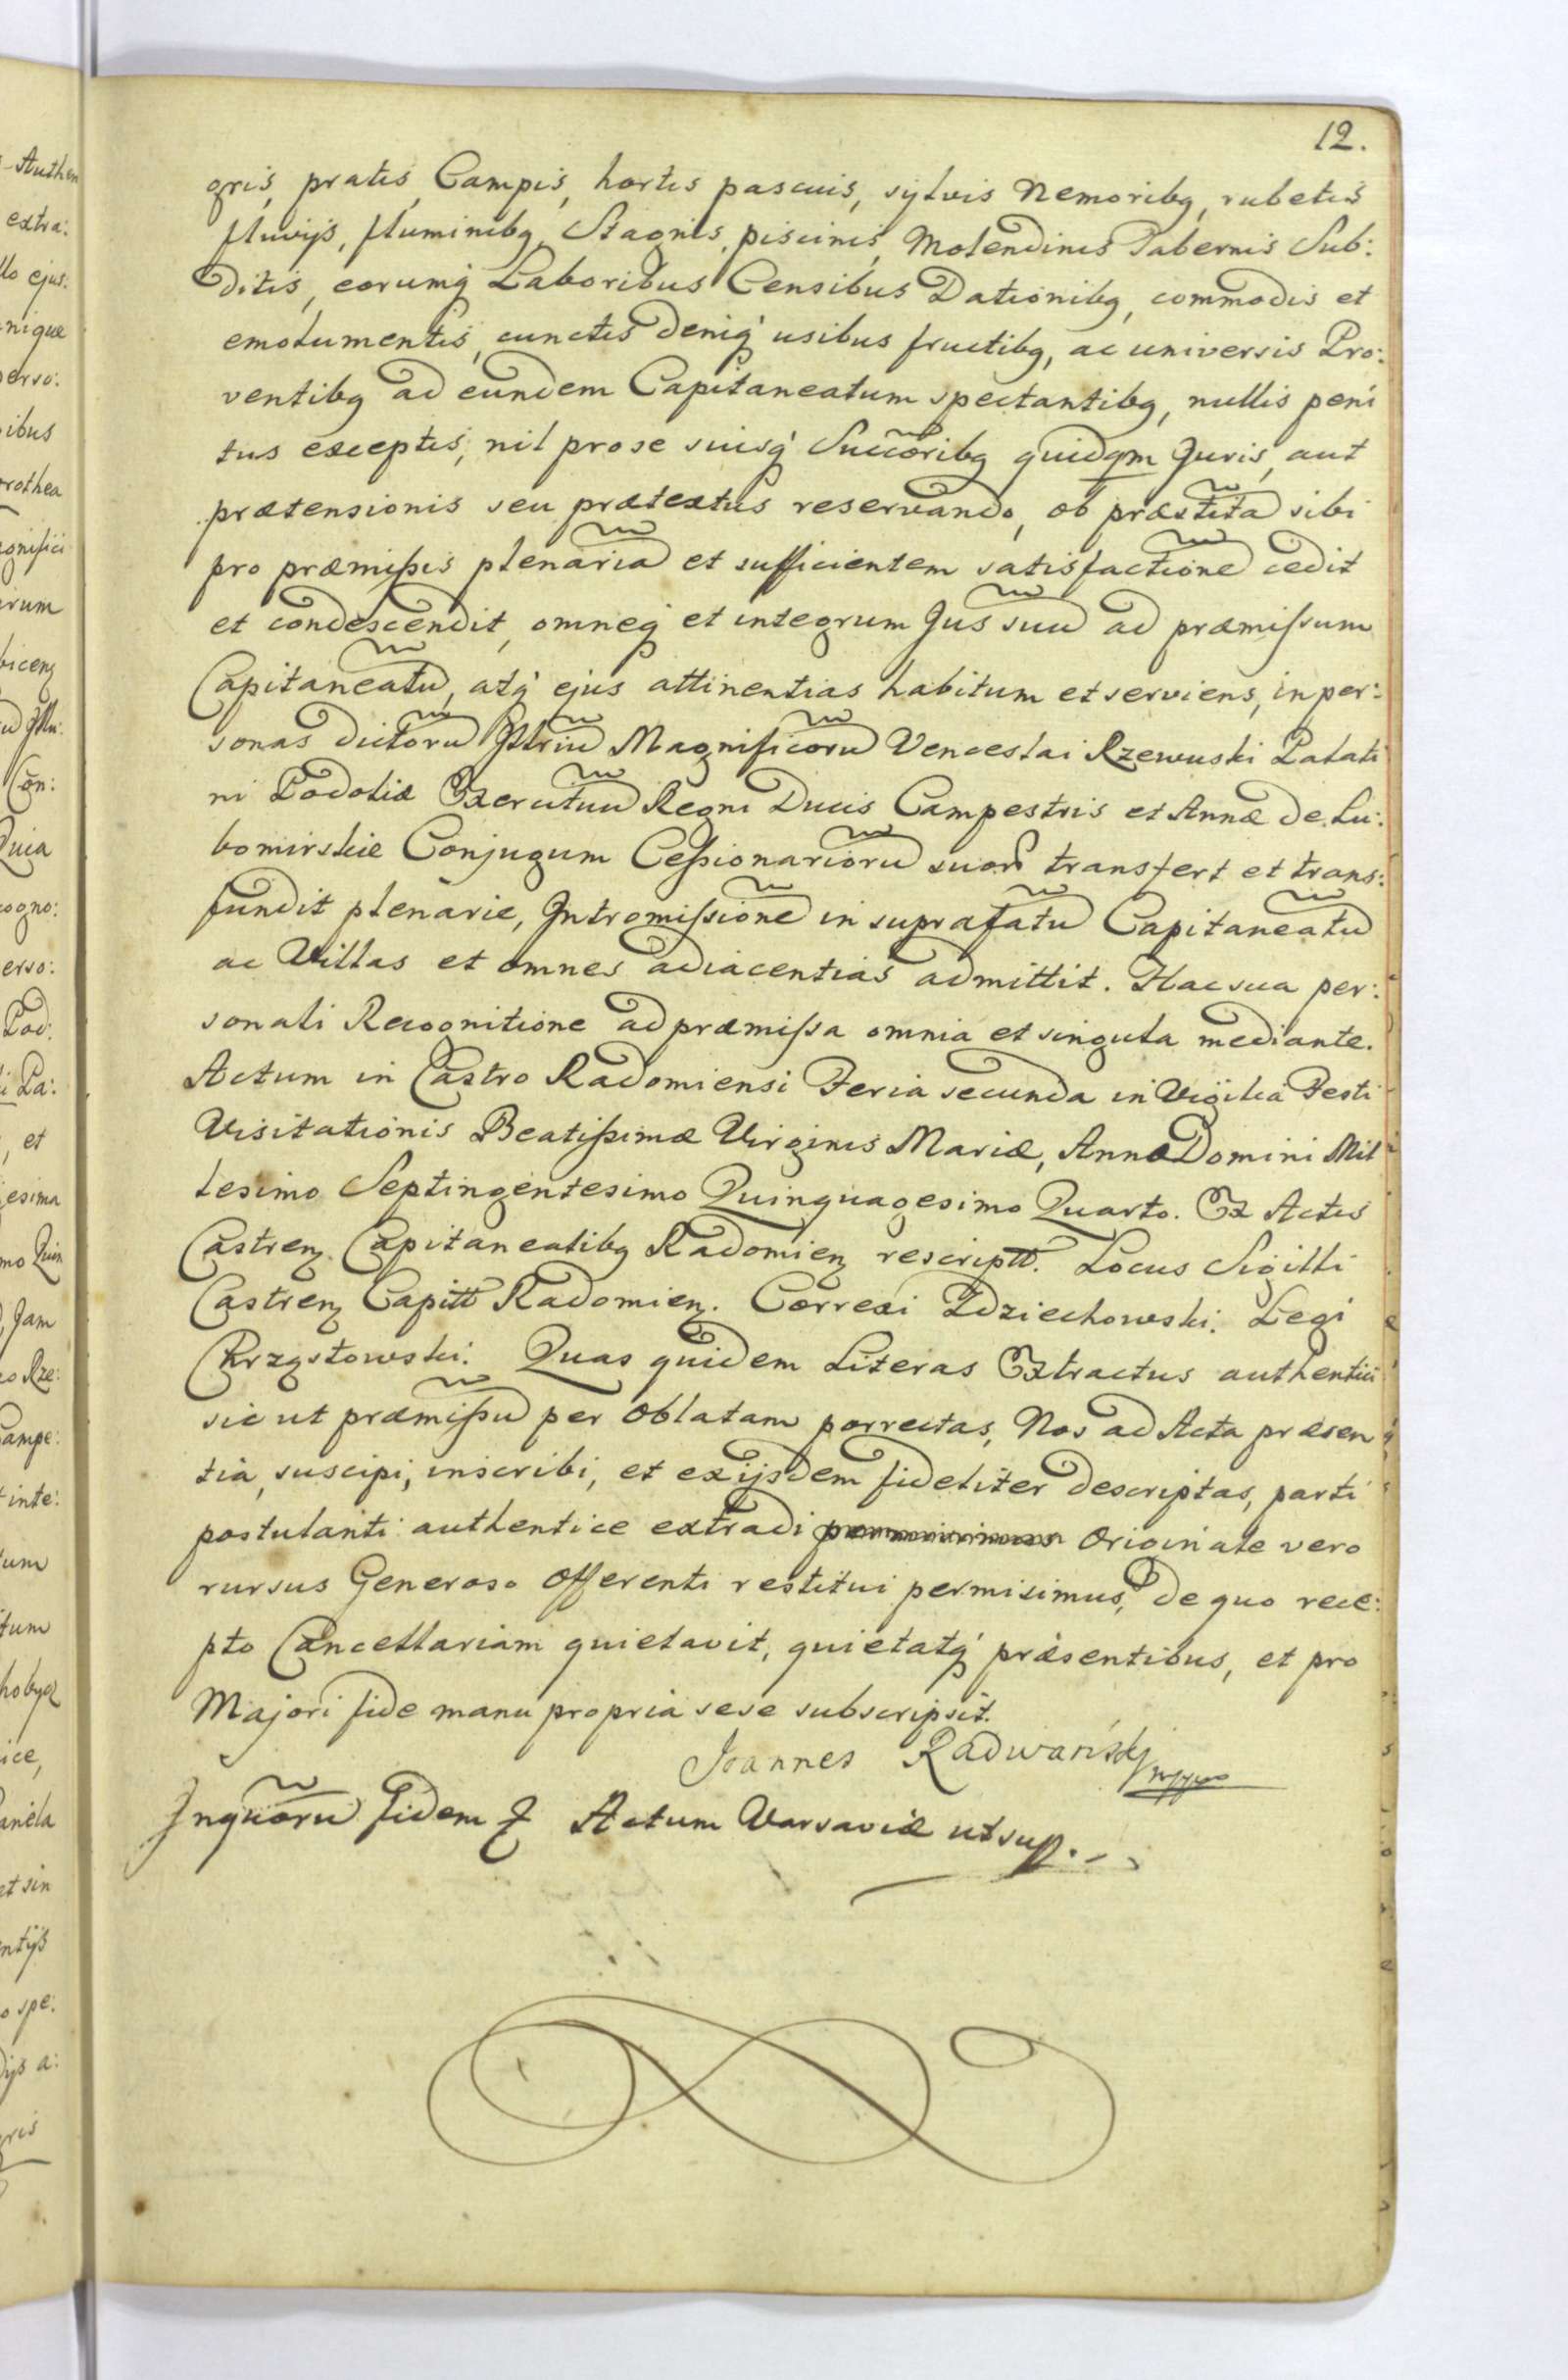 12.
gris, pratis, Campis, hortis pascuis, sylvis Nemoribꝫ, rubetis
fluvijs, fluminibꝫ, Stagnis, piscinis, Molendinis Tabernis Sub:
ditis, eorumq́ Laboribus Censibus Dationibꝫ, commodis et
emolumentis, cunctis deniq́ usibus fructibꝫ, ac universis Pro:
ventibꝫ ad eundem Capitaneatum spectantibꝫ, nullis peni
tus exceptis, nil pro se suisq́ Succoribꝫ quidqm Juris, aut
prætensionis seu prætextus reservando, ob præstita sibi
pro præmißis plenariã et sufficientem satisfactionẽ cedit
et condescendit, omneq́ et integrum Jus suũ ad præmissum
Capitaneatũ, atq́ ejus attinentias habitum et serviens, in per:
sonas dictorũ Jllriũ Magnificorũ Venceslai Rzewuski Palati
ni Podoliæ Exercituũ Regni Ducis Campestris et Annæ de Lu:
bomirskie Conjugum Ceßionariorũ suorũ transfert et trans:
fundit plenarie, Intromissionẽ in suprafatũ Capitaneatũ
ac Villas et omnes adiacentias admittit. Hac sua per:
sonali Recognitione ad præmissa omnia et singula mediante.
Actum in Castro Radomiensi Feria secunda in Vigilia Festi
Visitationis Beatißimæ Virginis Mariæ, Anno Domini Mil
lesimo Septingentesimo Quinquagesimo Quarto. Ex Actis
Castrenꝫ. Capitanealibꝫ Radomienꝫ rescriptt. Locus Sigilli
Castrenꝫ Capitt Radomienꝫ. Correxi Zdziechowski. Legi
Krząstowski. Quas quidem Literas Extractus authentici
sic ut præmißũ per Oblatam porrectas, Nos ad Acta præsen
tia, suscipi, inscribi, et ex ijsdem fideliter descriptas, parti
postulanti authentice extradi Originale vero
rursus Generoso Offerenti restitui permisimus, de quo rece:
pto Cancellariam quietavit, quietatq́ præsentibus, et pro
Majori fide manu propria sese subscripsit.
Joannes Radwański mppo
Inquorũ fidem Actum Varsaviæ ut sup.